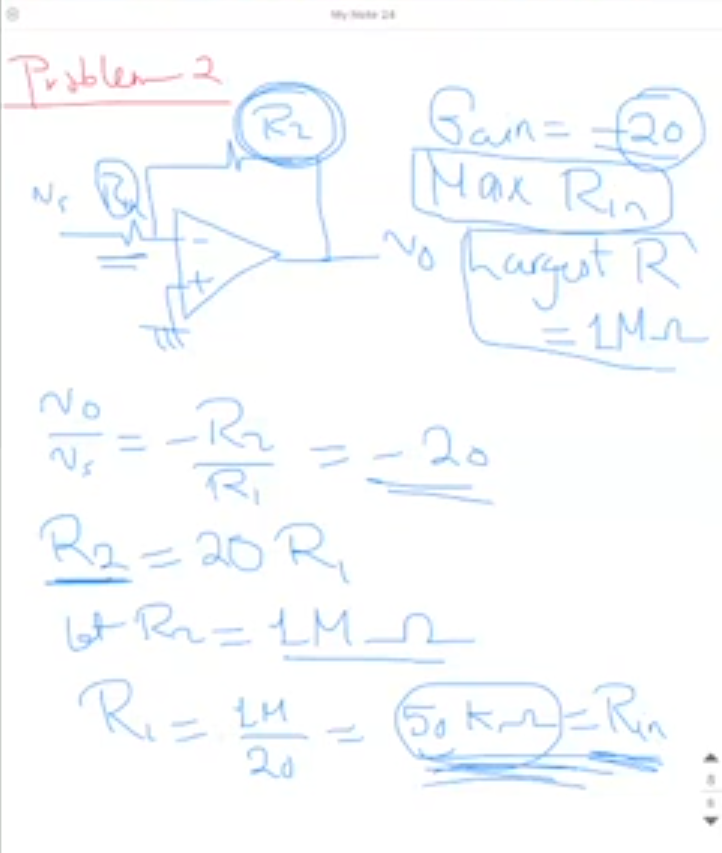 My Note 24
Problem 2
R2
Gain = -20
Max Rin
vs
R1
-
+
vo
Largest R
= 1MΩ
vo/vs = -R2/R1 = -20
R2 = 20 R1
let R2 = 1M Ω
R1 = 1M/20 = 50 KΩ = Rin
8
8